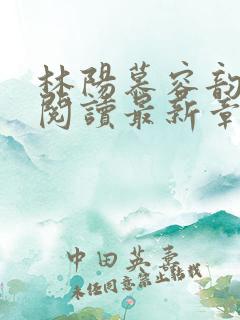 林陽慕容韵
閱讀最新章
中田英壽
未经同意禁止转载